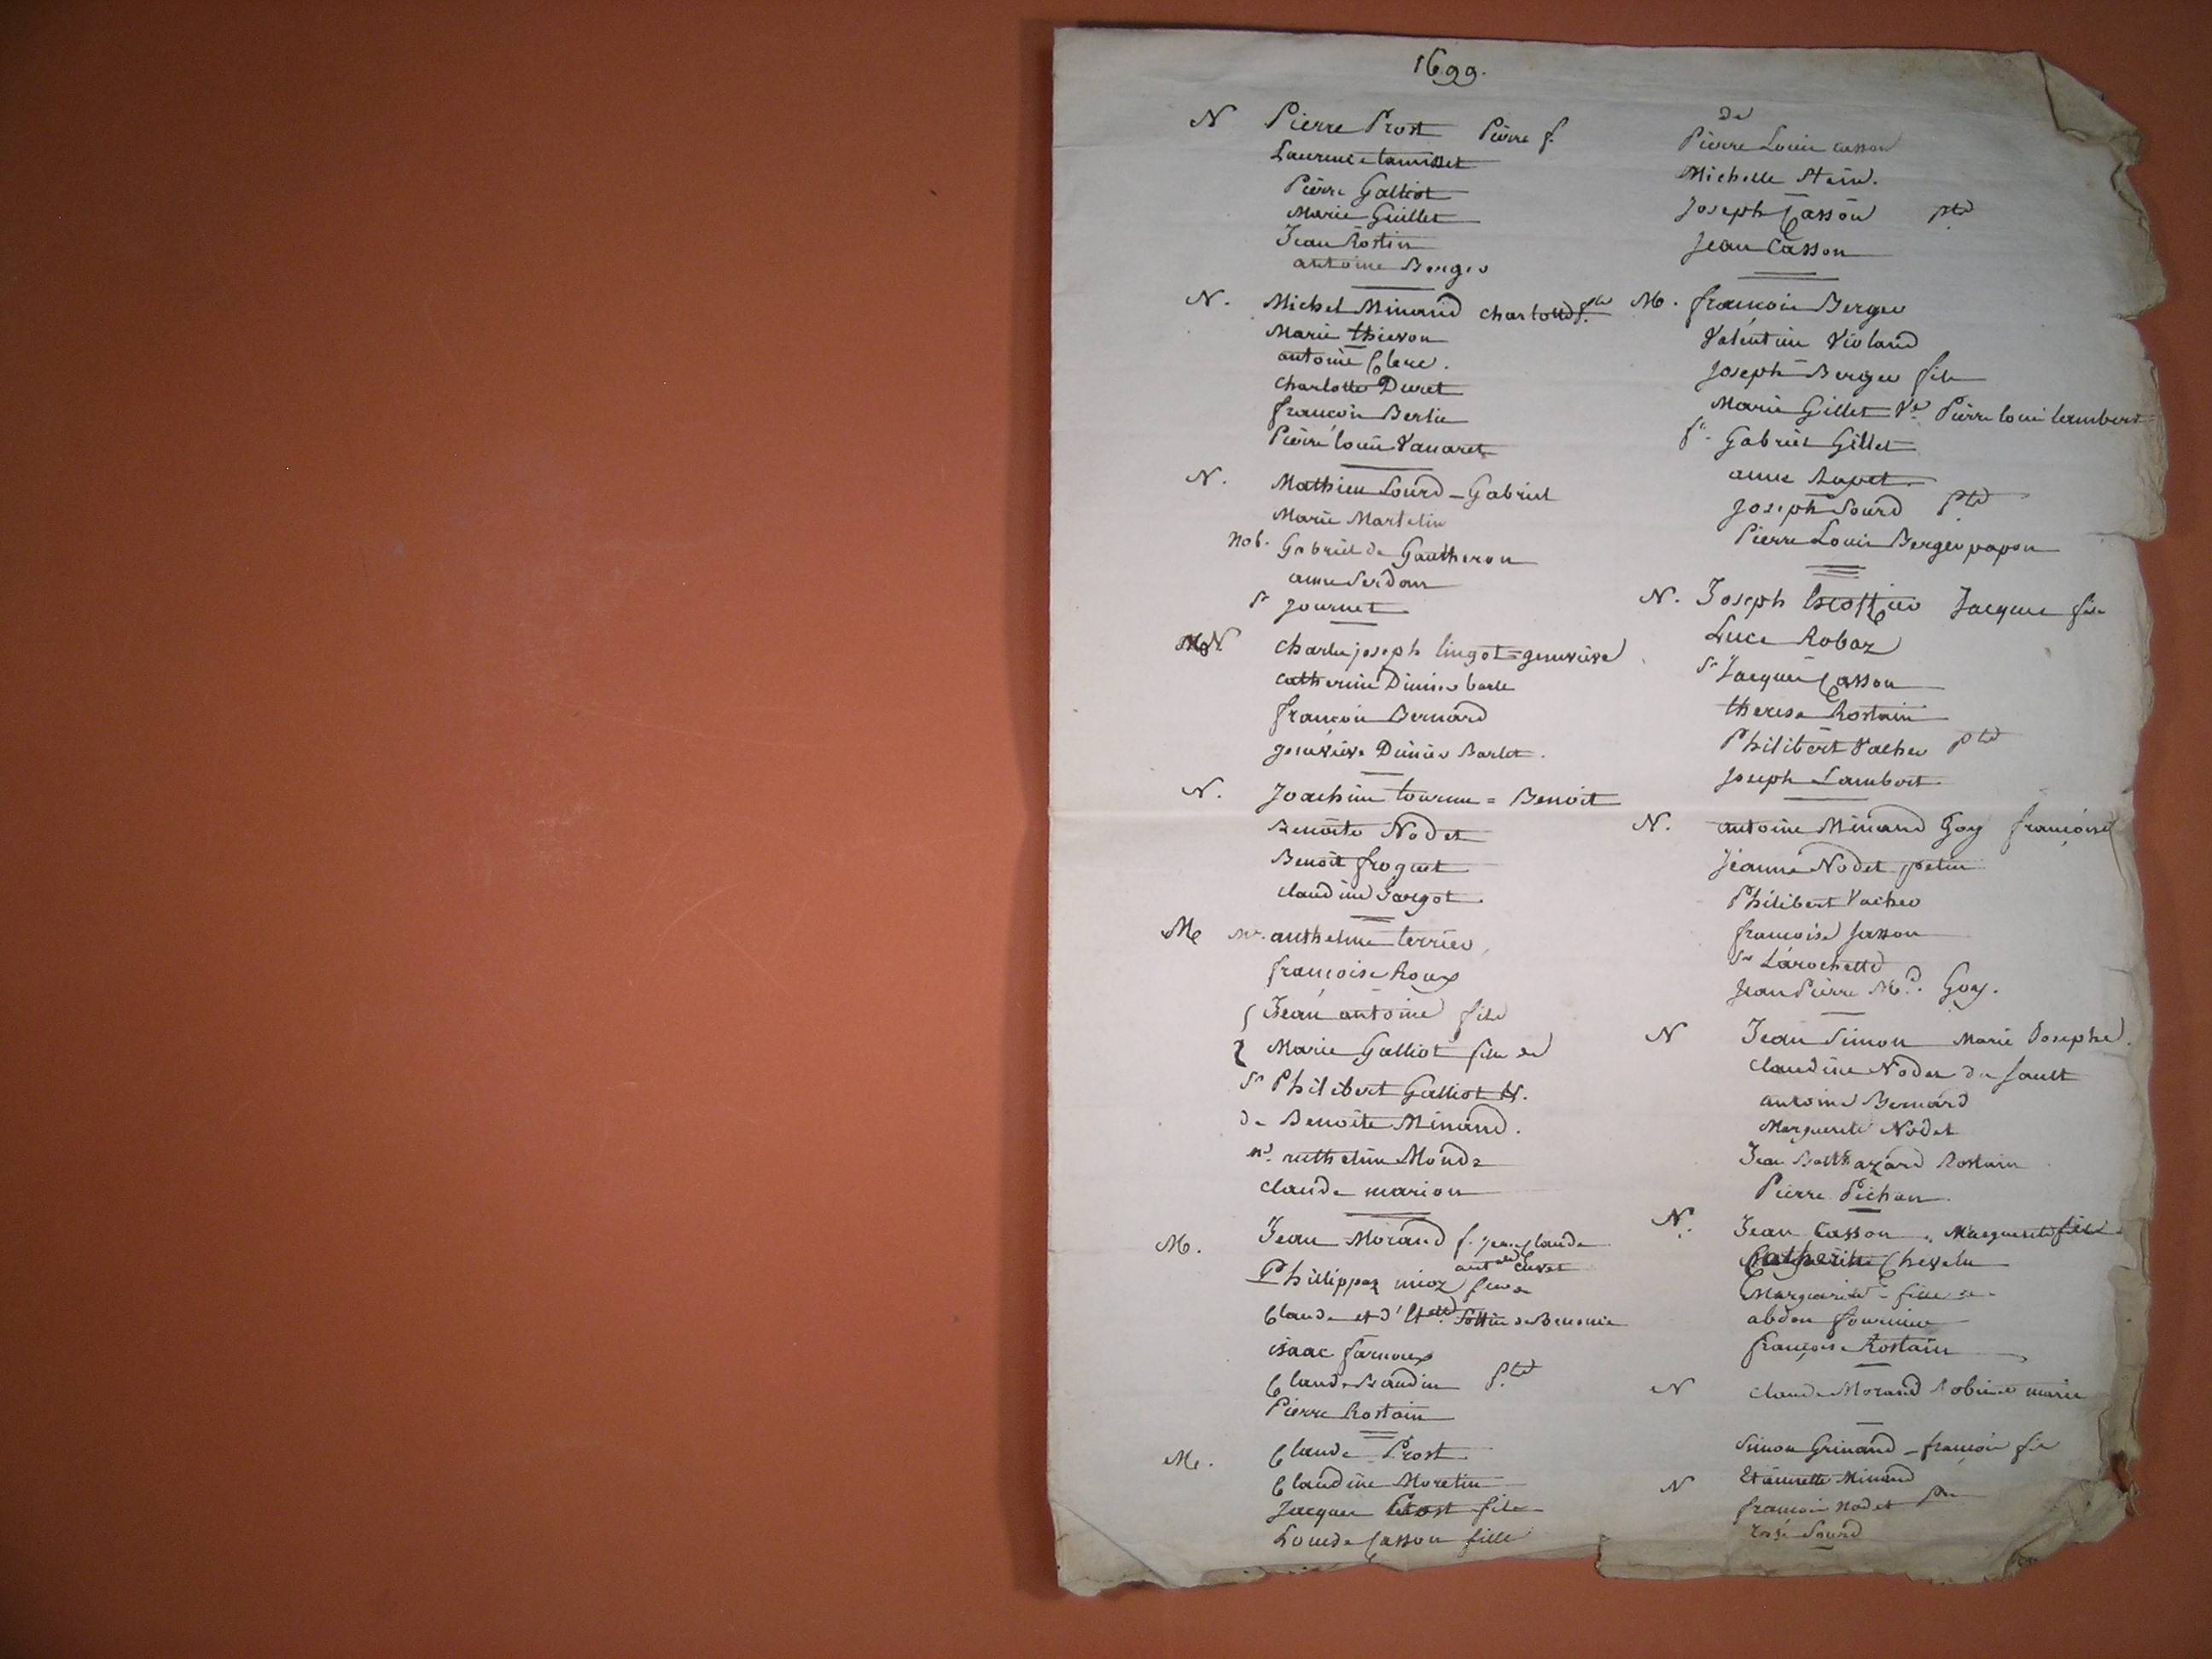 1699.
N Pierre Prost Pierre f.
Laurence tamisset
Pierre Galliot
Marie Guillet
Jean Rostin
antoine Berger
N. Michel Minand charlotte f.
Marie thievon
antoine Clerc.
charlotte Duret
francois Berlie
Pierre louis Vanaret
N. Mathieu Sourd - Gabriel
Marie Martelin
nob. Gabriel de Gautheron
anne Serdon
Sr Journet
N. charle joseph lingot = genevieve
catherine Dimier barle
francois Bernard
genevieve Dimier Barlet.
N. Joachim tournu = Benoit
Benoite Nodet
Benoit froguet
claudine Jargot.
M anthelme terrier
francoise Roux
Jean antoine fils
Marie Galliot fille de
Sr Philibert Galliot N.
de Benoite Minand.
anthelme Monde
claude marion
M. Jean Morand f. jean claude
Phillippaz mioz
Claude et d'
isaac farnoux
Claude Baudin ptd
Pierre Rostain
M. Claude Prost
Claudine Moretin
Jacques Prost fils
Louide Casson fille
de
Pierre Louis casson
Michelle
Joseph Casson ptd
Jean Casson
M. francois Berger
Valentine Violand
Joseph Berger fils
Marie Gillet Ve Pierre louis lambert
f. Gabriel Gillet
anne Rapet.
Joseph Sourd ptd
Pierre Louis Berger papon
N. Joseph Jacques fils
Luce Robaz
Sr Jacques Casson
therese Rostain
Philibert Vacher ptd
Joseph Lambert.
N. antoine Minand Goy francoise
Jeanne Nodet petin
Philibert Vacher
francoise Jasson
Sr Larochette
Jean Pierre Md. Goy.
N Jean Simon Marie Josephe.
claudine Nodet du sault
antoine Bernard
Marguerite Nodet
Jean Balthazard Rostain
Pierre Pichon
N. Jean Casson Marguerite fille
Catherine Chevelu
Marguerite fille de
abdon fournier
françoise Rostain
N claude Morand Robin marie
Simon Grinand - francois fils
N Etiennette Minand
francois Nodet
Sourd